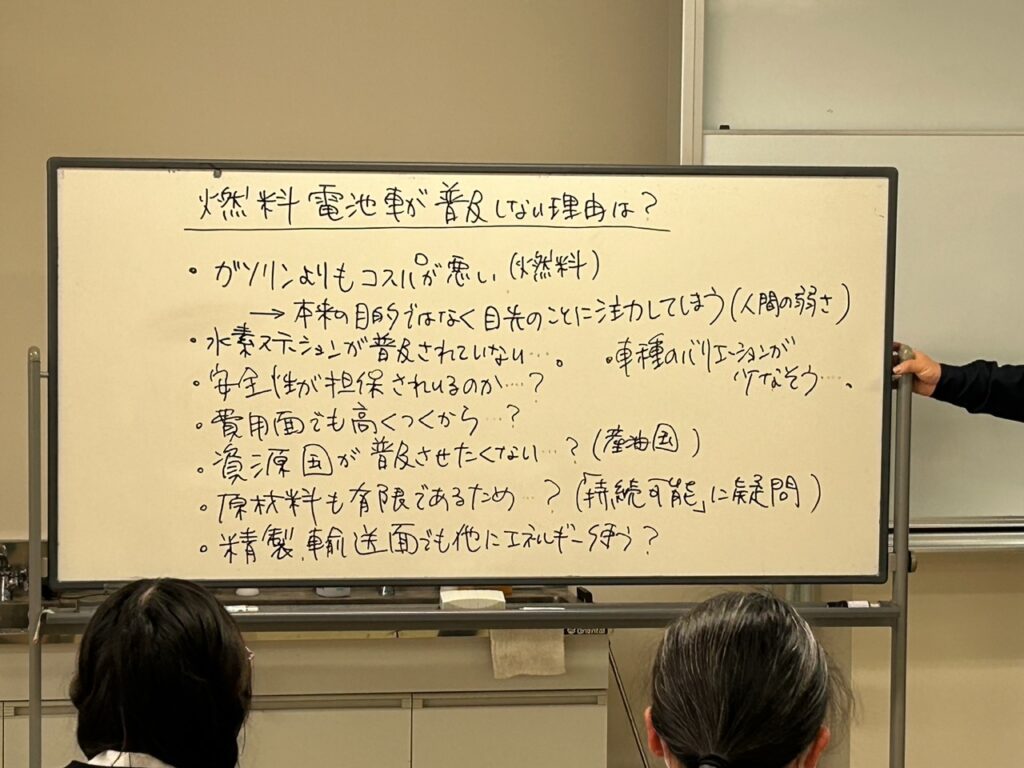 燃料電池車が普及しない理由は？
・ガソリンよりもコスパが悪い（燃料）
→本来の目的ではなく目先のことに注力してしまう（人間の弱さ）
・水素ステーションが普及されていない…。
・車種のバリエーションが
少なそう…。
・安全性が担保されいるのか…？
・費用面でも高くつくから…？
・資源国が普及させたくない…？（産油国）
・原材料も有限であるため…？（「持続可能」に疑問）
・精製、輸送面でも他にエネルギー使う？